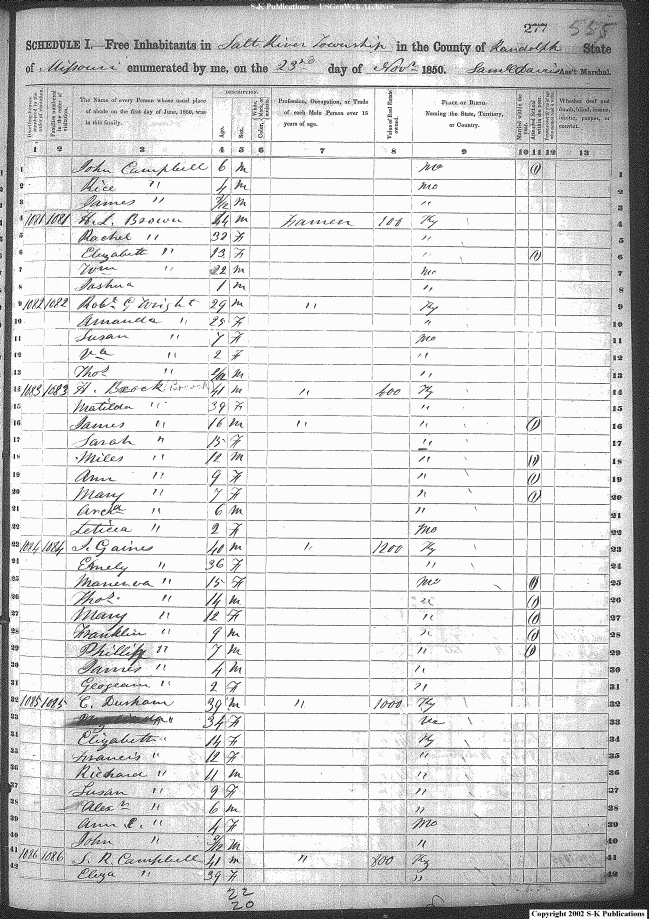 S-K Publications - USGenWeb Archives
277 555
SCHEDULE I.—Free Inhabitants in Salt River Township in the County of Randolph State
of Missouri enumerated by me, on the 23rd day of Novr 1850. Saml Davis Ass't Marshal.
DESCRIPTION.
Dwelling-houses numbered in the order of visitation. Families numbered in the order of visitation. The Name of every Person whose usual place of abode on the first day of June, 1850, was in this family. Age. Sex. Color, Profession, Occupation, or Trade of each Male Person over 15 years of age. Value of Real Estate owned. PLACE OF BIRTH. Naming the State, Territory, or Country. Married within the year. Attended School within the year. Whether deaf and dumb, blind, insane, idiotic, pauper, or convict.
1 2 3 4 5 6 7 8 9 10 11 12 13
1 John Campbell 6 m Mo (1) 1
2 Rice " 4 m Mo 2
3 James " /12 m " 3
4 1081 1081 H. L. Brown 44 m Farmer 100 Ky 4
5 Rachel " 32 F " 5
6 Elizabeth " 13 F " (1) 6
7 Wm " 22 m Mo 7
8 Joshua 1 m " 8
9 1082 1082 Robt G Wright 29 m " Ky 9
10 Amanda " 25 F " 10
11 Susan " 7 F Mo 11
12 Va " 2 F " 12
13 Thos " /12 m " 13
14 1083 1083 H. Brock Brock 41 m " 400 Ky 14
15 Matilda " 39 F " 15
16 James " 16 m " " (1) 16
17 Sarah " 15 F " 17
18 Miles " 12 m " (1) 18
19 Ann " 9 F " (1) 19
20 Mary " 7 F " (1) 20
21 Archa " 6 m " 21
22 Leticia " 2 F Mo 22
23 1084 1084 J. Gaines 40 m " 1200 Ky 23
24 Emely " 36 F " 24
25 Manerva " 15 F Mo (1) 25
26 Thos " 14 m " (1) 26
27 Mary " 12 F " (1) 27
28 Franklin " 9 m " (1) 28
29 Phillip " 7 m " (1) 29
30 James " 4 m " 30
31 Geogeann " 2 F " 31
32 1085 1085 C. Durham 39 m " 1000 Ky 32
33 " 34 F Va 33
34 Elizabeth " 14 F Ky 34
35 Francis " 12 F " 35
36 Richard " 11 m " 36
37 Susan " 9 F " 37
38 Alexr " 6 m " 38
39 Ann E. " 4 F Mo 39
40 John " /12 m " 40
41 1086 1086 S. R. Campbell 41 m " 800 Ky 41
42 Eliza " 39 F " 42
22
20
Copyright 2002 S-K Publications